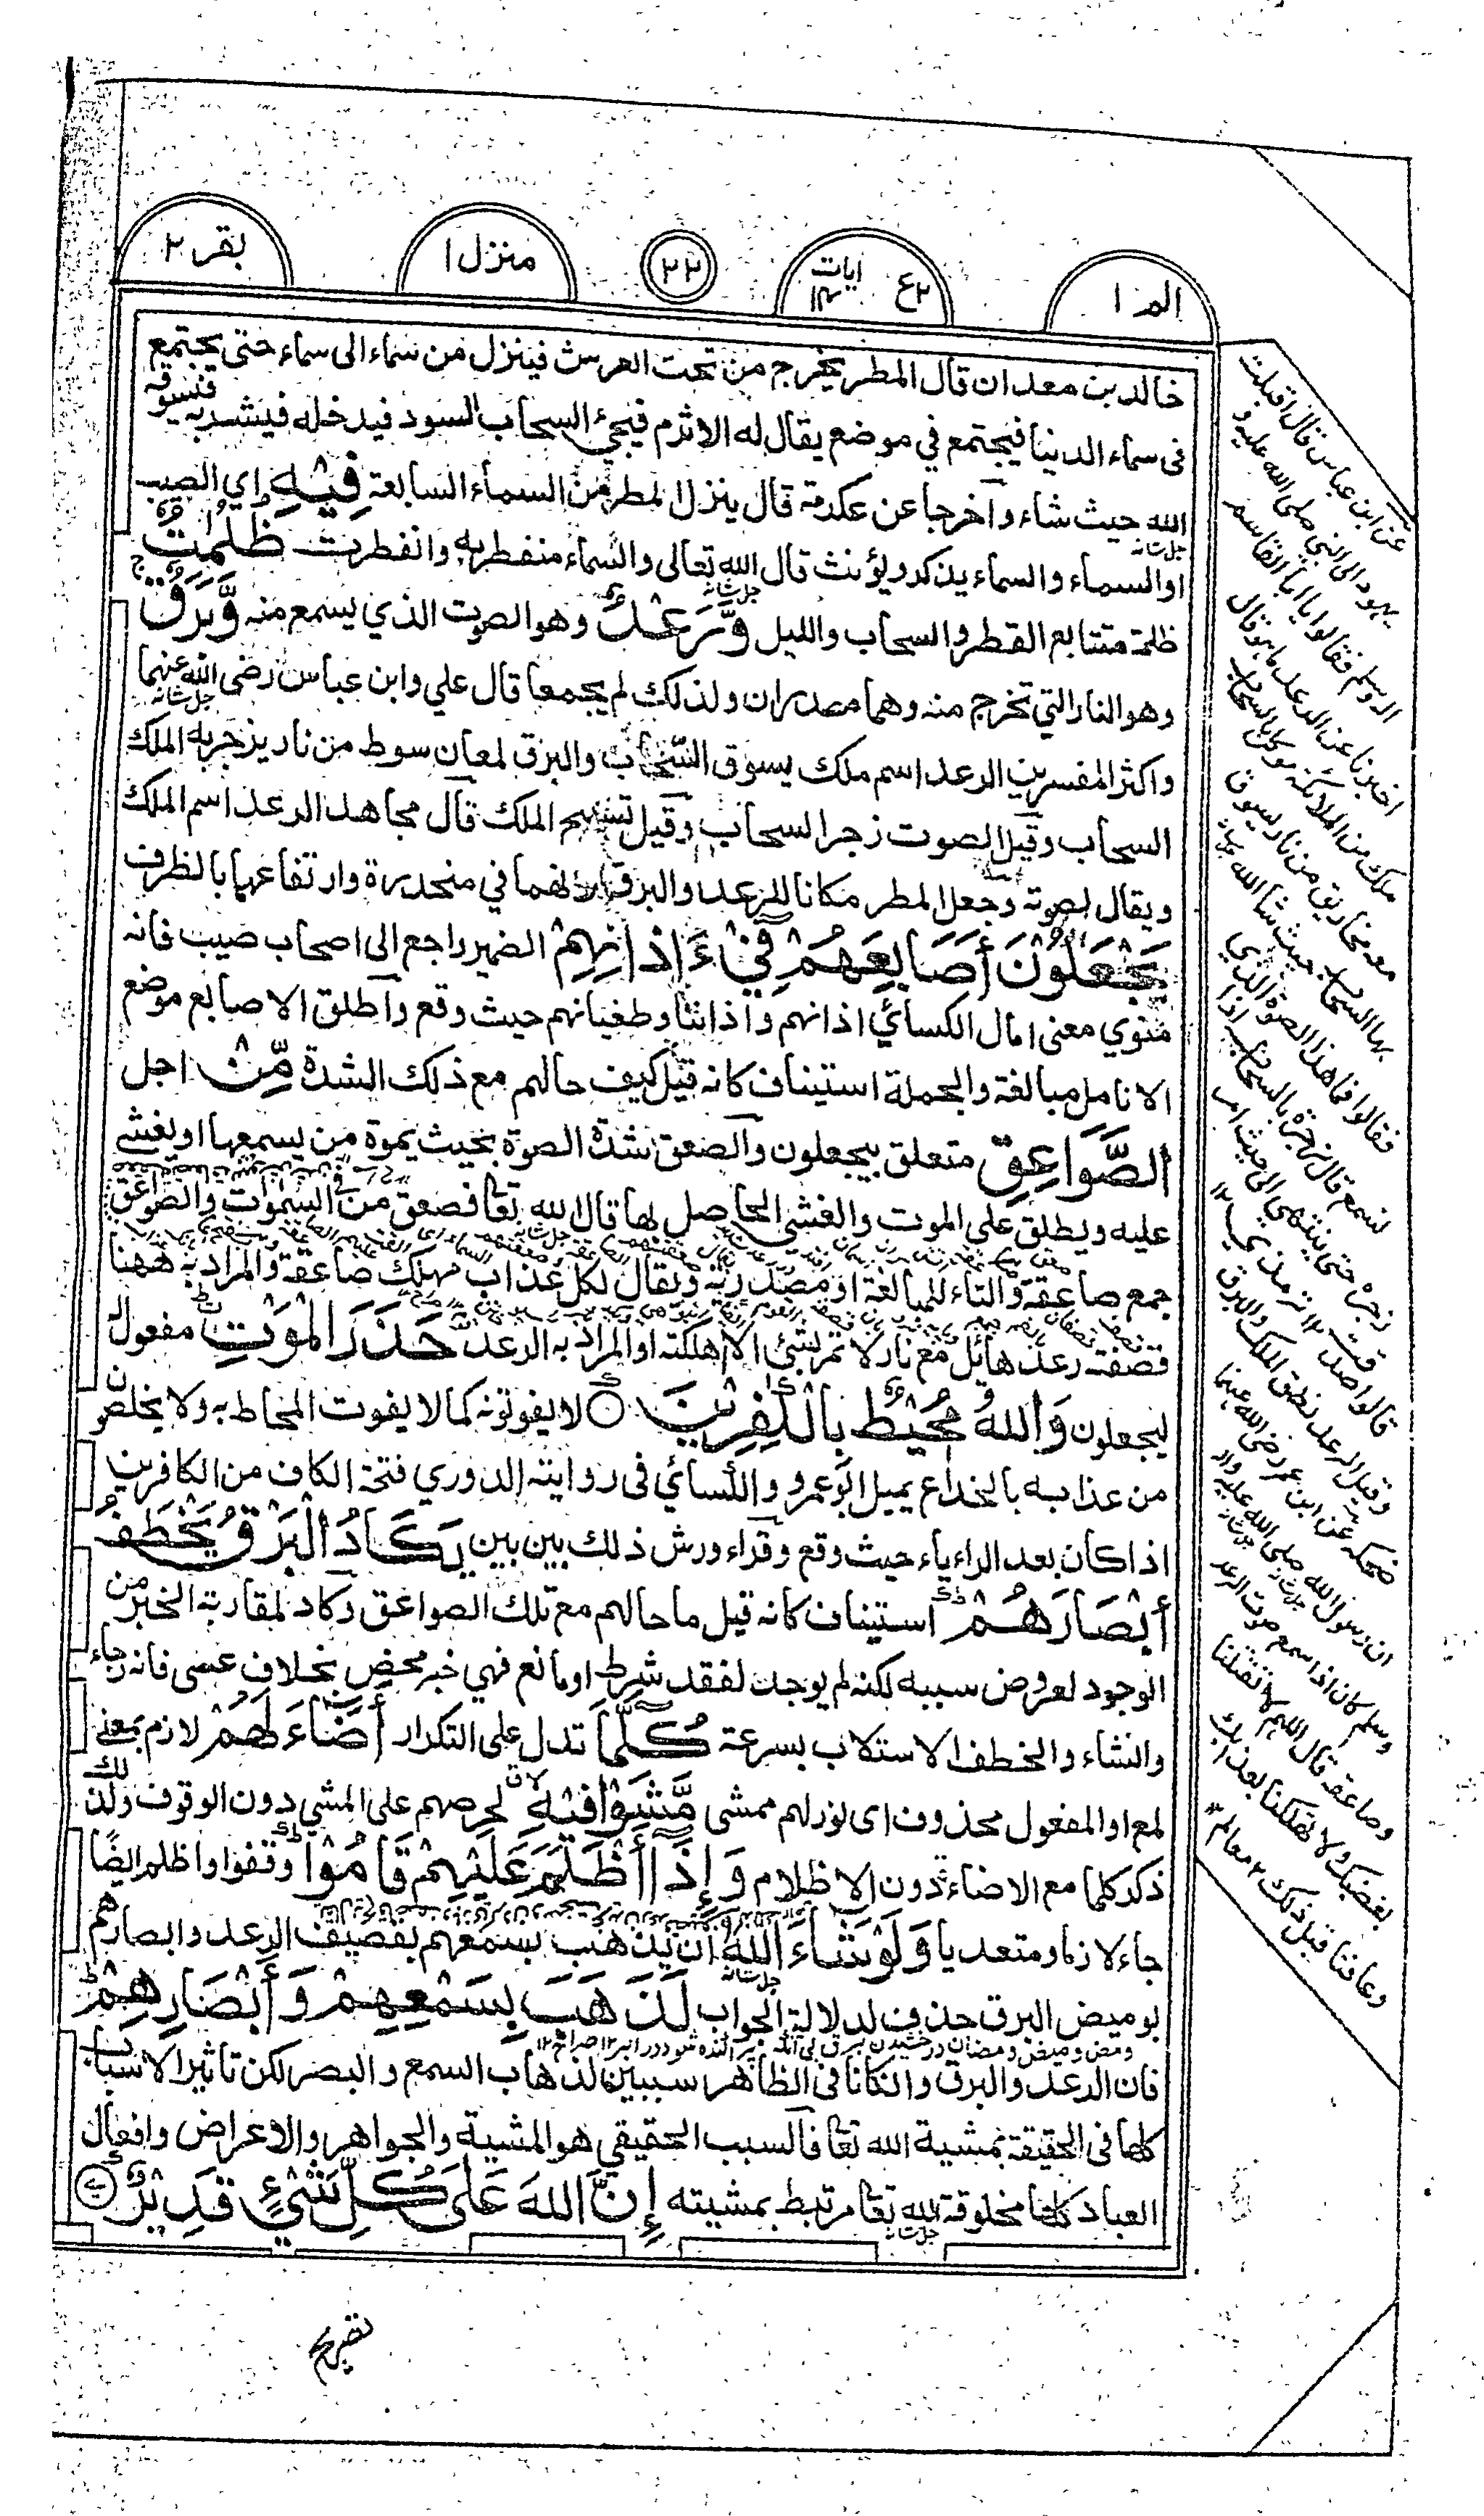 الم ١
ع٢ ايات
٢٢
منزل ١
بقر ٢
خالد بن معدان قال المطر يخرج من تحت العرش فينزل من سماء الى سماء حتى يجتمع
فى سماء الدنيا فيجتمع في موضع يقال له الاثرم فيجئ السحاب السود فيدخله فيشربه فيسوقه
الله جل شانه حيث شاء واخرجا عن عكرمة قال ينزل المطر من السماء السابعة فِيْهِ اي الصيب
او السماء والسماء يذكر ويؤنث قال الله تعالى جل شانه والسماء منفطر به وانفطرت ظُلُمٰتٌ
ظلمة متتابع القطر والسحاب والليل وَّرَعْدٌ وهو الصوت الذي يسمع منه وَّبَرْقٌ
وهو النار التي تخرج منه وهما مصدران ولذلك لم يجمعا قال علي وابن عباس رضى الله عنهما
واكثر المفسرين الرعد اسم ملك يسوق السحاب والبرق لمعان سوط من نار يزجر به الملك
السحاب وقيل الصوت زجر السحاب وقيل تسبيح الملك قال مجاهد الرعد اسم الملك
ويقال لصوته وجعل المطر مكانا للرعد والبرق لانهما في منحدره وارتفاعهما بالظرف
يَجْعَلُوْنَ أَصَابِعَهُمْ فِيْ ءَاذَانِهِمْ الضمير راجع الى اصحاب صيب فانه
منوي معنى امال الكسائي اذانهم واذاننا وطغيانهم حيث وقع واطلق الاصابع موضع
الانامل مبالغة والجملة استيناف كانه قيل كيف حالهم مع ذلك الشدة مِّنْ اجل
الصَّوَاعِقِ متعلق بيجعلون والصعق شدة الصوة بحيث يموة من يسمعها او يغشى
عليه ويطلق على الموت والغشي الحاصل لها قال الله تعا فصعق من فى السموت والصواعق
جمع صاعقة والتاء للمبالغة او مصدرية ويقال لكل عذاب مهلك صاعقة والمراد به ههنا
قصفة رعد هائل مع نار لا تمر بشئ الا اهلكته او المراد به الرعد حَذَرَ الْمَوْتِ مفعول له
ليجعلون وَاللهُ مُحِيْطٌ بِالْكٰفِرِيْنَ لا يفوتونه كما لا يفوت المحاط به ولا يخلصون
من عذابه بالخداع يميل ابو عمرو والكسائي فى رواية الدوري فتحة الكاف من الكافرين
اذا كان بعد الراء ياء حيث وقع وقراء ورش ذلك بين بين يَكَادُ الْبَرْقُ يَخْطَفُ
أَبْصَارَهُمْ استيناف كانه قيل ما حالهم مع تلك الصواعق وكاد لمقاربة الخبر من
الوجود لعروض سببه لكنه لم يوجد لفقد شرط او مانع فهي خبر محض بخلاف عسى فانه رجاء
وانشاء والخطف الاستلاب بسرعة كُلَّمَا تدل على التكرار أَضَاءَ لَهُمْ لازم بمعنى
لمع او المفعول محذوف اى نور لهم ممشى مَّشَوْا فِيْهِ لحرصهم على المشي دون الوقوف ولذلك
ذكر كلما مع الاضاءة دون الاظلام وَإِذَا أَظْلَمَ عَلَيْهِمْ قَامُوْا وقفوا واظلم ايضًا
جاء لازما ومتعديا وَلَوْ شَاءَ اللهُ ان يذهب بسمعهم بقصيف الرعد وابصارهم
بوميض البرق حذف لدلالة الجواب لَذَهَبَ بِسَمْعِهِمْ وَأَبْصَارِهِمْ
فان الرعد والبرق وان كانا فى الظاهر سببين لذهاب السمع والبصر لكن تاثير الاسباب
كلها فى الحقيقة بمشية الله تعا فالسبب الحقيقي هو المشية والجواهر والاعراض وافعال
العباد كلها مخلوقة لله تعا جل شانه مرتبط بمشيته إِنَّ اللهَ عَلَى كُلِّ شَيْءٍ قَدِيْرٌ
عن ابن عباس قال اقبلت
يهود الى النبي صلى الله عليه و
اله وسلم فقالوا يا ابا القاسم
اخبرنا عن الرعد ما هو قال
ملك من الملائكة موكل بالسحاب
معه مخاريق من نار يسوق
بها السحاب حيث شاء الله
فقالوا فما هذا الصوة الذي
نسمع قال زجره بالسحاب اذا
زجره حتى ينتهى الى حيث امر
قالوا صدقت ١٢ ترمذي
وقيل الرعد نطق الملك والبرق
ضحكه عن ابن عمر رضى الله عنهما
ان رسول الله صلى الله عليه واله
وسلم كان اذا سمع صوت الرعد
وصاعقة قال اللهم لا تقتلنا
بغضبك ولا تهلكنا بعذابك
وعافنا قبل ذلك ١٢ معالم